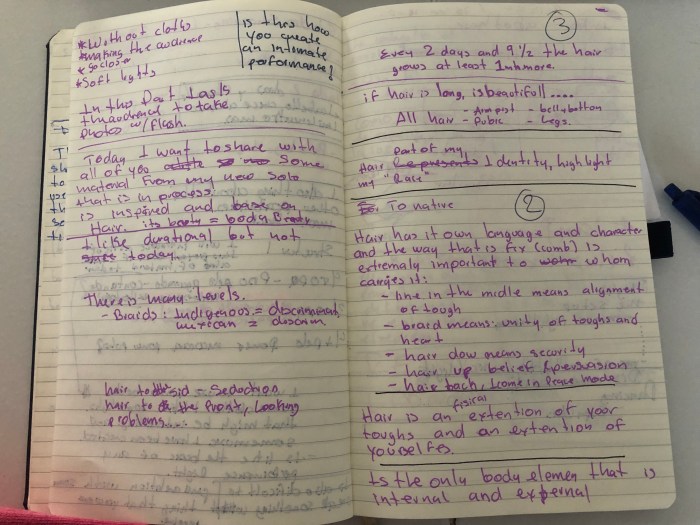 *Without cloths
*making the audience
* so closer
*Soft lights
is this how
you create
an intimate
performance?
In the Part I ask
the audience to take
photos w/ flash.
Today I want to share with
all of you some
material from my new solo
that is in process.
is inspired and base on
Hair. its beauty = body Beauty
I like durational but not
today.
There is many levels.
- Braids: Indigenous = discriminate,
mexican = discrim
hair to sid = Seduction
hair to the front, Looking
problems...
3
Every 2 days and 9 1/2 the hair
grows at least 1mhmore.
if hair is long, is beautifull....
All hair - Armpist - bellybotton
- Pubic - Legs.
Part of my
Hair represents Identity, highlight
my "Race"
To native
2
Hair has it own language and character
and the way that is fix (comb) is
extremaly important to whom
carries it:
- line in the midle means alignment
of tough
- braid means: unity of toughs and
heart
- hair dow means security
- hair up belief & persuasion
- hair bach, I come in Peace mode
fisical
Hair is an extention of your
toughs and an extention of
youselfes.
Is the only body elemen that is
internal and external